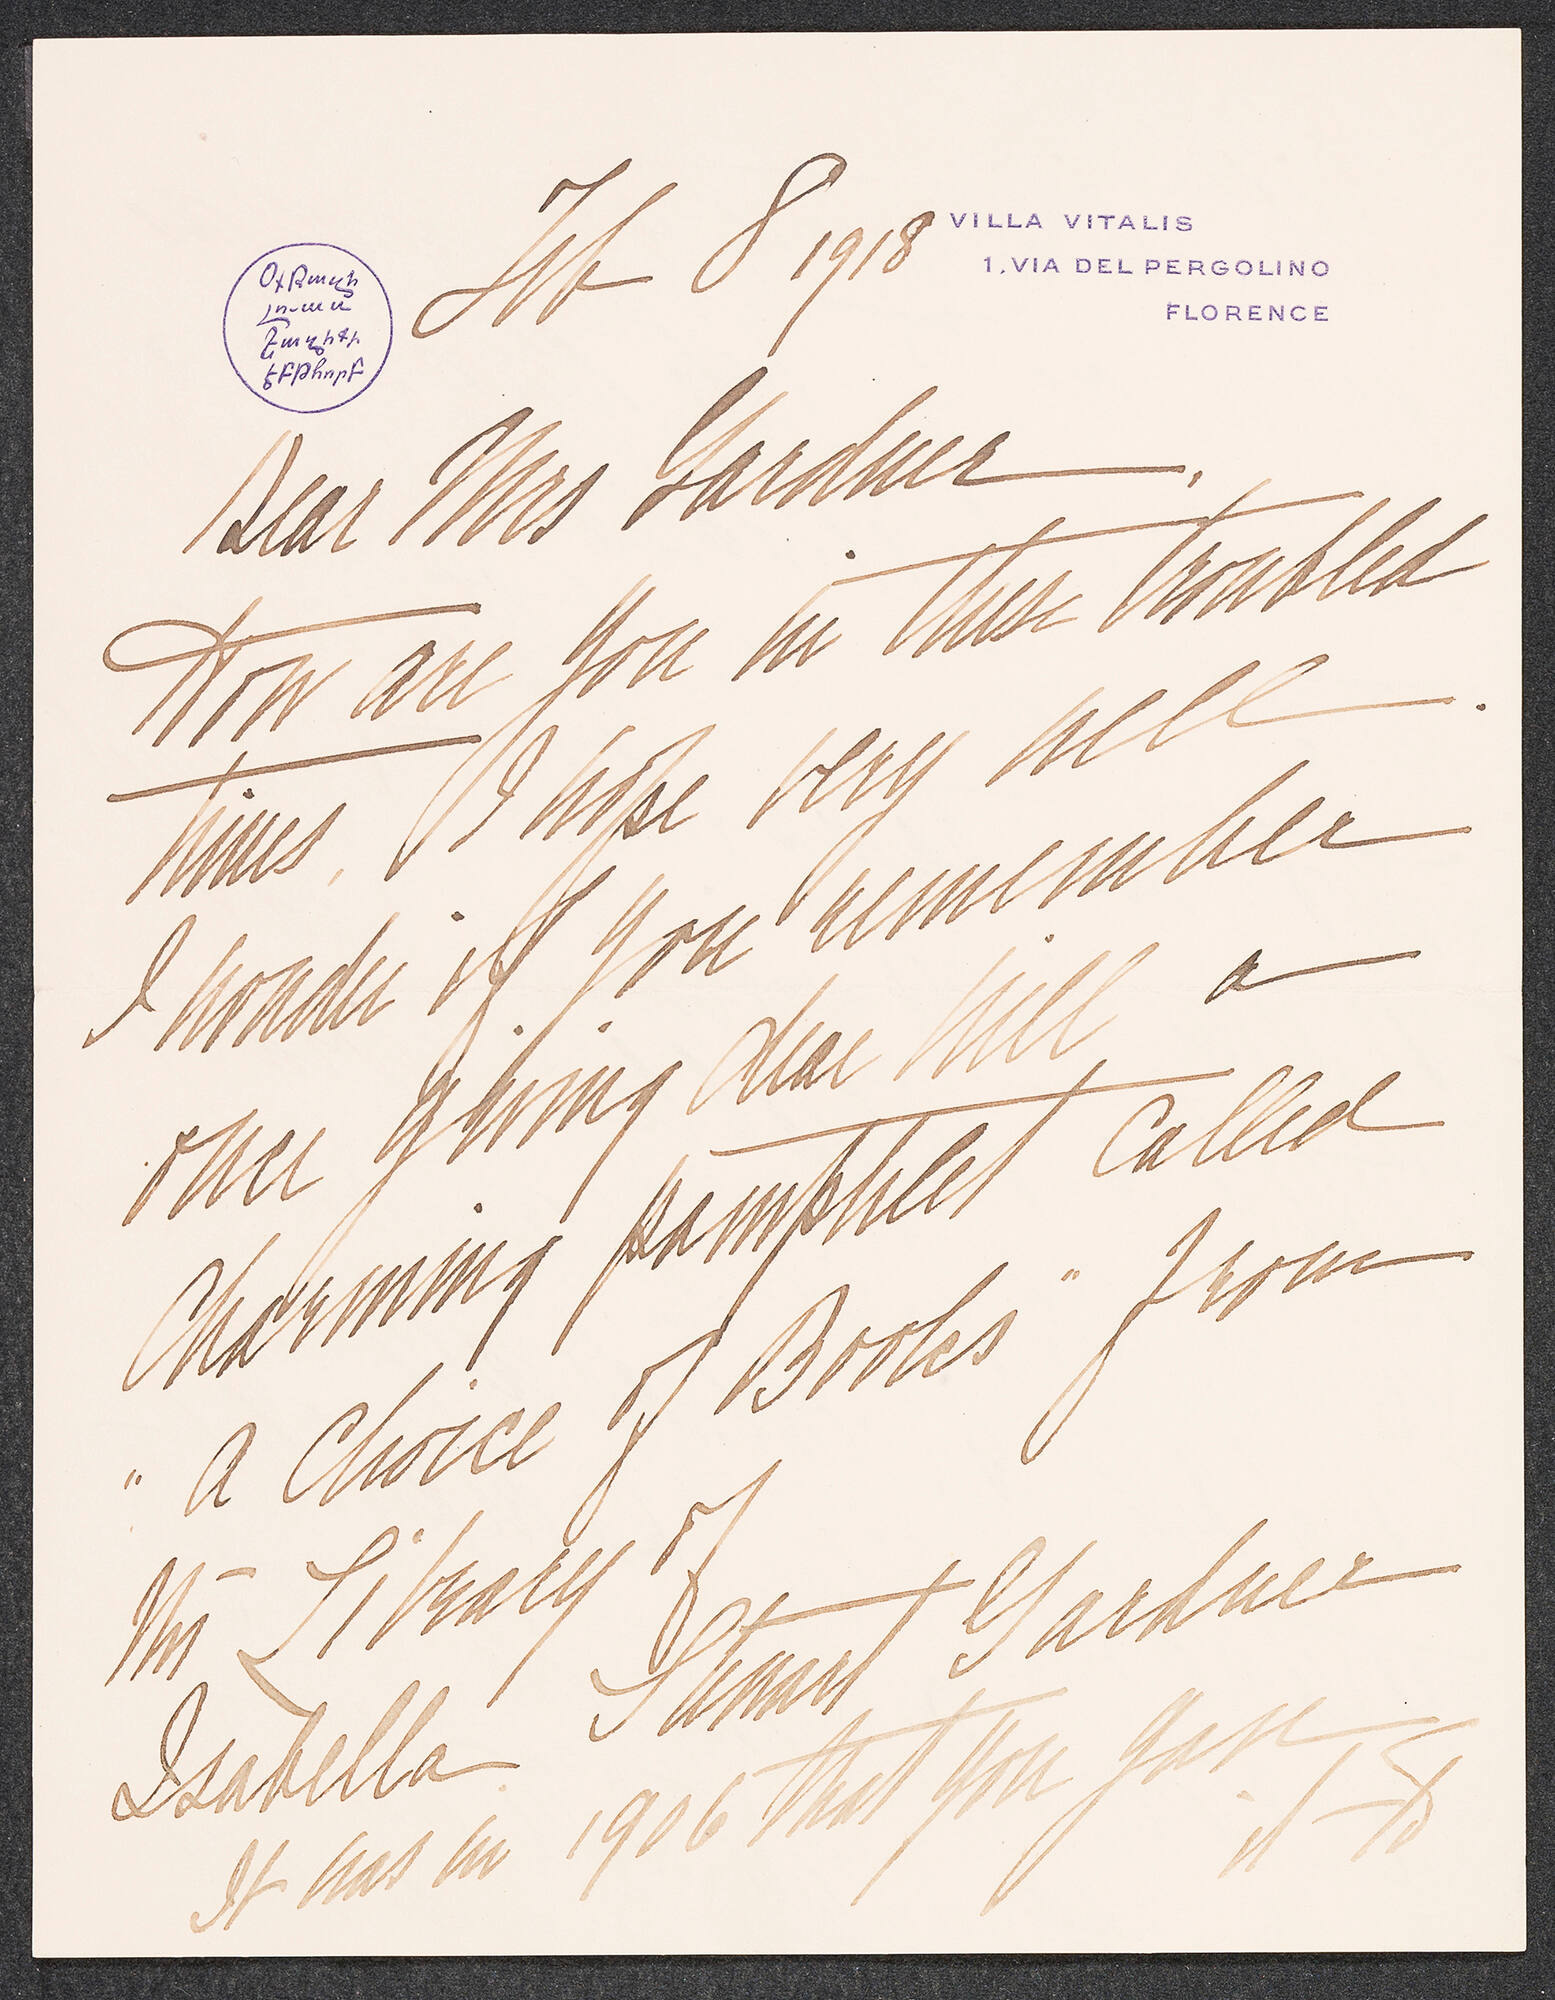 Feb 8 1918
VILLA VITALIS
1, VIA DEL PERGOLINO
FLORENCE
Dear Mrs Gardner.
How are you in these troubled
times, I hope very well.
I wonder if you remember
once giving dear Will a
Charming pamphlet called
" A Choice of Books" from
the Library of
Isabella Stewart Gardner
It was in 1906 that you gave
it to